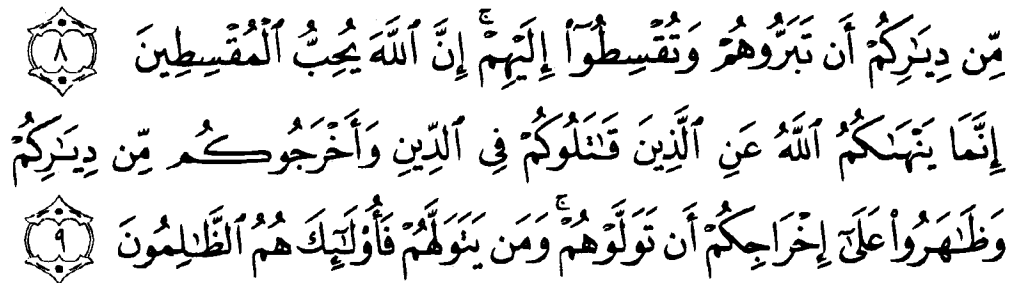 مِّن دِيَٰرِكُمْ أَن تَبَرُّوهُمْ وَتُقْسِطُوٓا۟ إِلَيْهِمْ ۚ إِنَّ ٱللَّهَ يُحِبُّ ٱلْمُقْسِطِينَ ٨
إِنَّمَا يَنْهَىٰكُمُ ٱللَّهُ عَنِ ٱلَّذِينَ قَٰتَلُوكُمْ فِى ٱلدِّينِ وَأَخْرَجُوكُم مِّن دِيَٰرِكُمْ
وَظَٰهَرُوا۟ عَلَىٰٓ إِخْرَاجِكُمْ أَن تَوَلَّوْهُمْ ۚ وَمَن يَتَوَلَّهُمْ فَأُو۟لَٰٓئِكَ هُمُ ٱلظَّٰلِمُونَ ٩